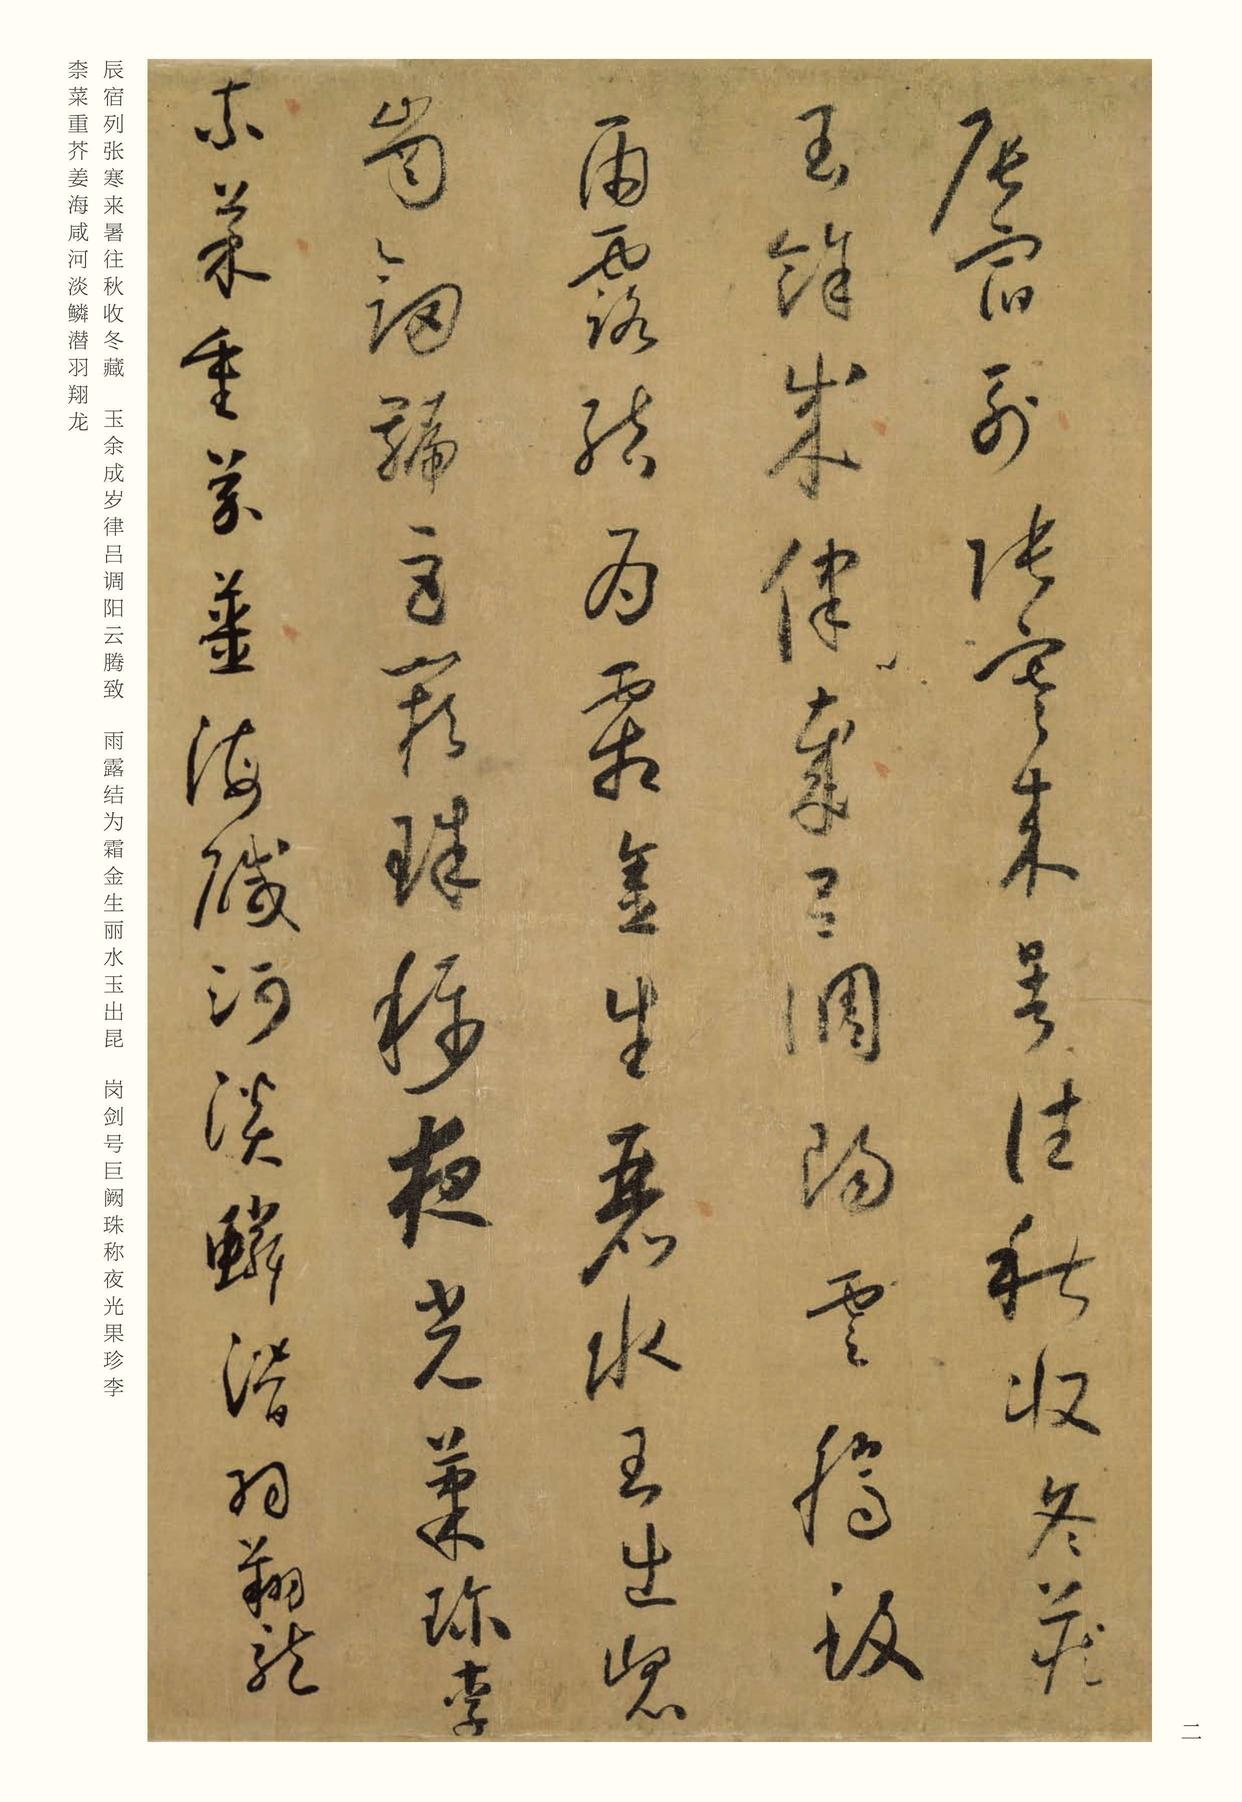 辰宿列張寒來暑往秋收冬藏
玉餘成律歲呂調陽雲騰致
雨露結為霜金生麗水玉出崑
崗劍號巨闕珠稱夜光菓珍李
柰菜重芥薑海鹹河淡鱗潛羽翔龍
辰宿列张寒来暑往秋收冬藏　玉余成岁律吕调阳云腾致　雨露结为霜金生丽水玉出昆　岗剑号巨阙珠称夜光果珍李
柰菜重芥姜海咸河淡鳞潜羽翔龙
二